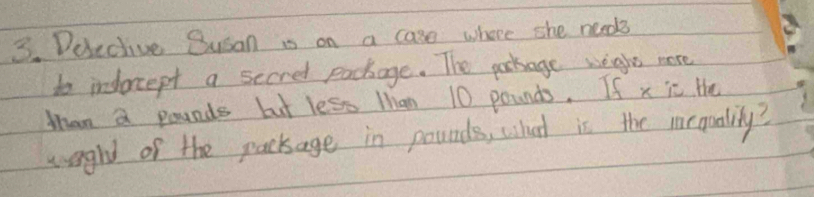 3. Detective Susan is on a case where she needs
to intercept a secret package. The package weighs more
than 2 pounds but less than 10 pounds. If x is the
weight of the package in pounds, what is the inequality?